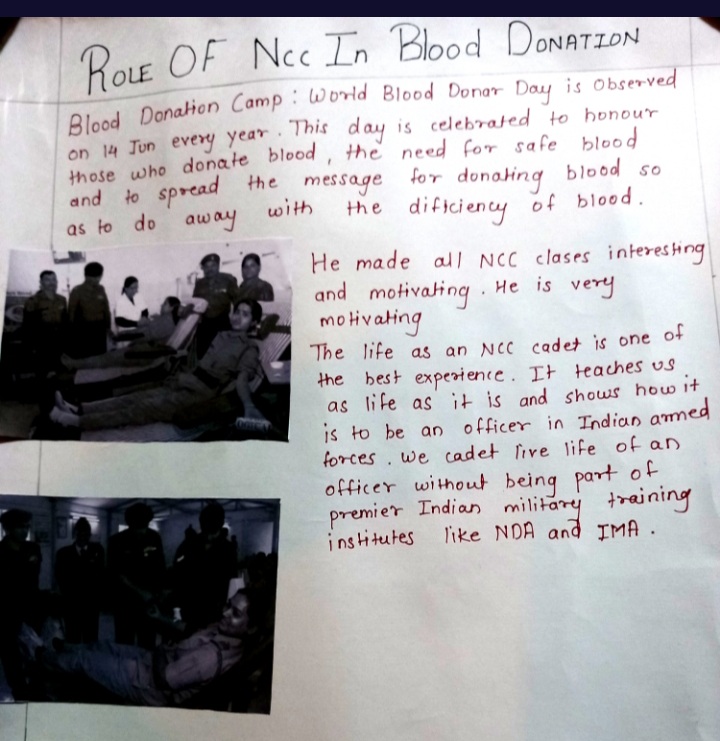 ROLE OF NCC IN Blood DONATION
Blood Donation Camp : World Blood Donor Day is Observed
on 14 Jun every year. This day is celebrated to honour
those who donate blood, the need for safe blood
and to spread the message for donating blood so
as to do away with the dificiency of blood.
He made all NCC clases interesting
and motivating. He is very
motivating
The life as an NCC cadet is one of
the best experience. It teaches us
as life as it is and shows how it
is to be an officer in Indian armed
forces. We cadet live life of an
officer without being part of
premier Indian military training
institutes like NDA and IMA.